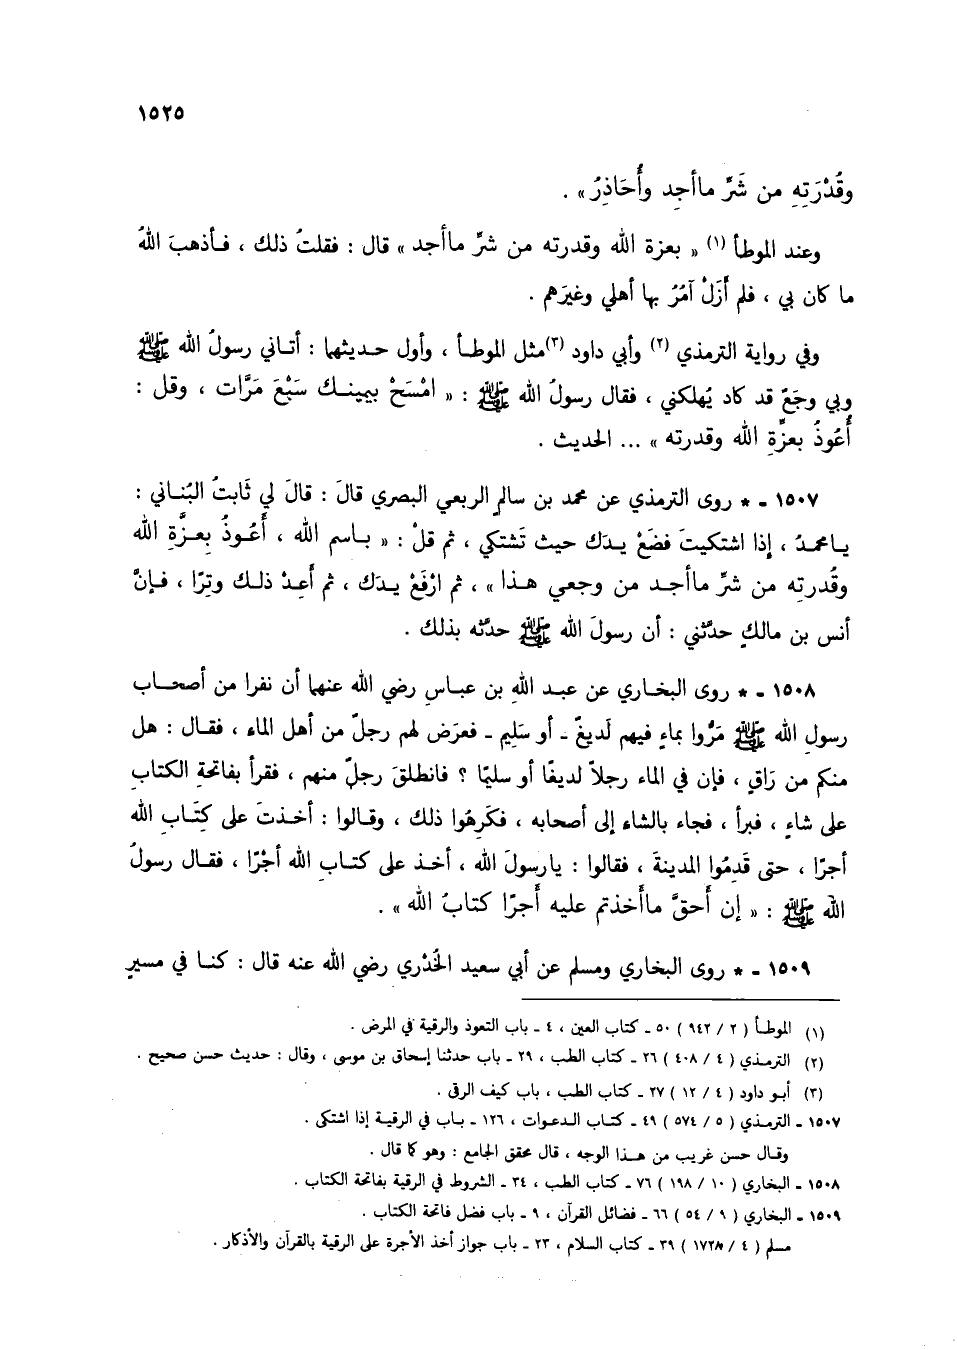 ١٥٢٥
وقُدْرَتِهِ من شَرِّ ماأجِد وأُحَاذِرُ » .
وعند الموطأ (١) « بعزة الله وقدرته من شرِّ ماأجد » قال : فقلتُ ذلك ، فـأذهبَ اللهُ
ما كان بي ، فلم أَزَلْ آمُرُ بها أهلي وغيرَهم .
وفي رواية الترمذي (٢) وأبي داود (٣)مثل الموطـأ ، وأول حـديثهـا : أتـاني رسولُ الله ﷺ
وبي وجَعٌ قد كاد يُهلكني ، فقال رسولُ الله ﷺ : « امْسَحْ بيمينـك سَبْعَ مَرَّات ، وقل :
أَعُوذُ بعزَّةِ الله وقدرته » ... الحديث .
١٥٠٧ - * روى الترمذي عن محمد بن سالم الربعي البصري قالَ : قالَ لي ثَابتُ البُنـاني :
يـامحمـدُ ، إذا اشتكيتَ فضَعْ يـدَك حيث تَشتكي ، ثم قلْ : « بـاسم الله ، أَعُـوذُ بِعـزَّةِ الله
وقُدرتِه من شرِّ ماأجـد من وجعي هـذا » ، ثم ارْفَعْ يـدَك ، ثم أَعِدْ ذلـك وتِرًا ، فـإنَّ
أنس بن مالكٍ حدَّثني : أن رسولَ الله ﷺ حدَّثه بذلك .
١٥٠٨ - * روى البخـاري عن عبـد اللهِ بن عبـاس رضي الله عنها أن نفرا من أصحـاب
رسولِ الله ﷺ مَرُّوا بماءٍ فيهم لَديغٌ - أو سَلِيم - فعرَض لهم رجلٌ من أهل الماء ، فقـال : هل
منكم من رَاقٍ ، فإن في الماء رجلاً لديغًا أو سليمًا ؟ فانطلقَ رجلٌ منهم ، فقرأ بفاتحةِ الكتابِ
على شاءٍ ، فبرأ ، فجاء بالشاء إلى أصحابه ، فكَرِهُوا ذلك ، وقـالوا : أخـذتَ على كِتَـابِ الله
أجرًا ، حتى قَدِمُوا المدينةَ ، فقالوا : يارسولَ الله ، أخـذ على كتـابِ الله أجْرًا ، فقـال رسولُ
الله ﷺ : « إن أَحقَّ ماأَخذتم عليه أَجرًا كتابُ الله » .
١٥٠٩ - * روى البخاري ومسلم عن أبي سعيد الخُدْري رضي الله عنه قال : كنـا في مسيرٍ
(١) الموطـأ ( ٢ / ٩٤٢ ) ٥٠ - كتاب العين ، ٤ - باب التعوذ والرقية في المرض .
(٢) الترمـذي ( ٤ / ٤٠٨ ) ٢٦ - كتاب الطب ، ٢٩ - باب حدثنا إسحاق بن موسى ، وقال : حديث حسن صحيح .
(٣) أبـو داود ( ٤ / ١٢ ) ٢٧ - كتاب الطب ، باب كيف الرقى .
١٥٠٧ - الترمـذي ( ٥ / ٥٧٤ ) ٤٩ - كتـاب الـدعـوات ، ١٢٦ - بـاب في الرقيـة إذا اشتكى .
وقـال حسن غريب من هـذا الوجه ، قال محقق الجامع : وهو كما قال .
١٥٠٨ - البخاري ( ١٠ / ١٩٨ ) ٧٦ - كتاب الطب ، ٣٤ - الشروط في الرقية بفاتحة الكتاب .
١٥٠٩ - البخاري ( ٩ / ٥٤ ) ٦٦ - فضائل القرآن ، ٩ - باب فضل فاتحة الكتاب .
مسلم ( ٤ / ١٧٢٨ ) ٣٩ - كتاب السلام ، ٢٣ - باب جواز أخذ الأجرة على الرقية بالقرآن والأذكار .